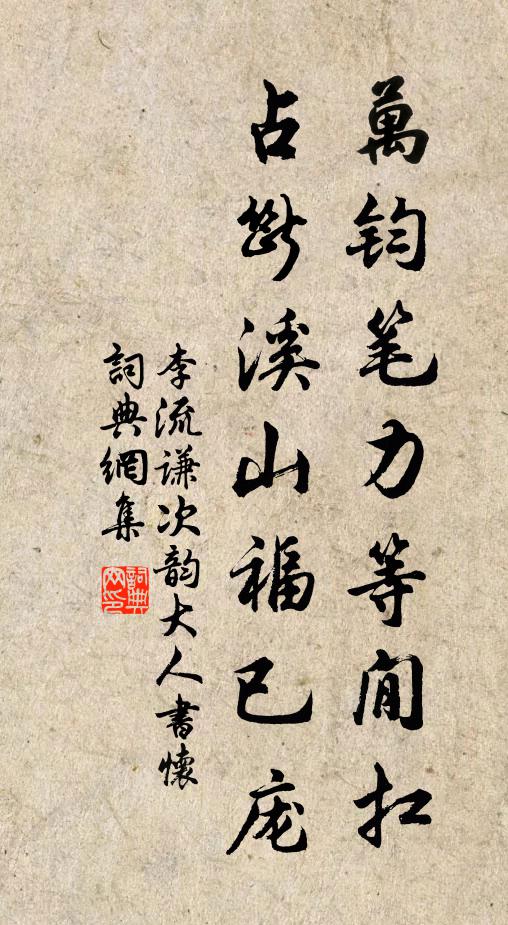 萬鈞笔力等閒扛
占斷溪山福已庞
李流谦次韵大人書懷
詞典網集
詞典网印